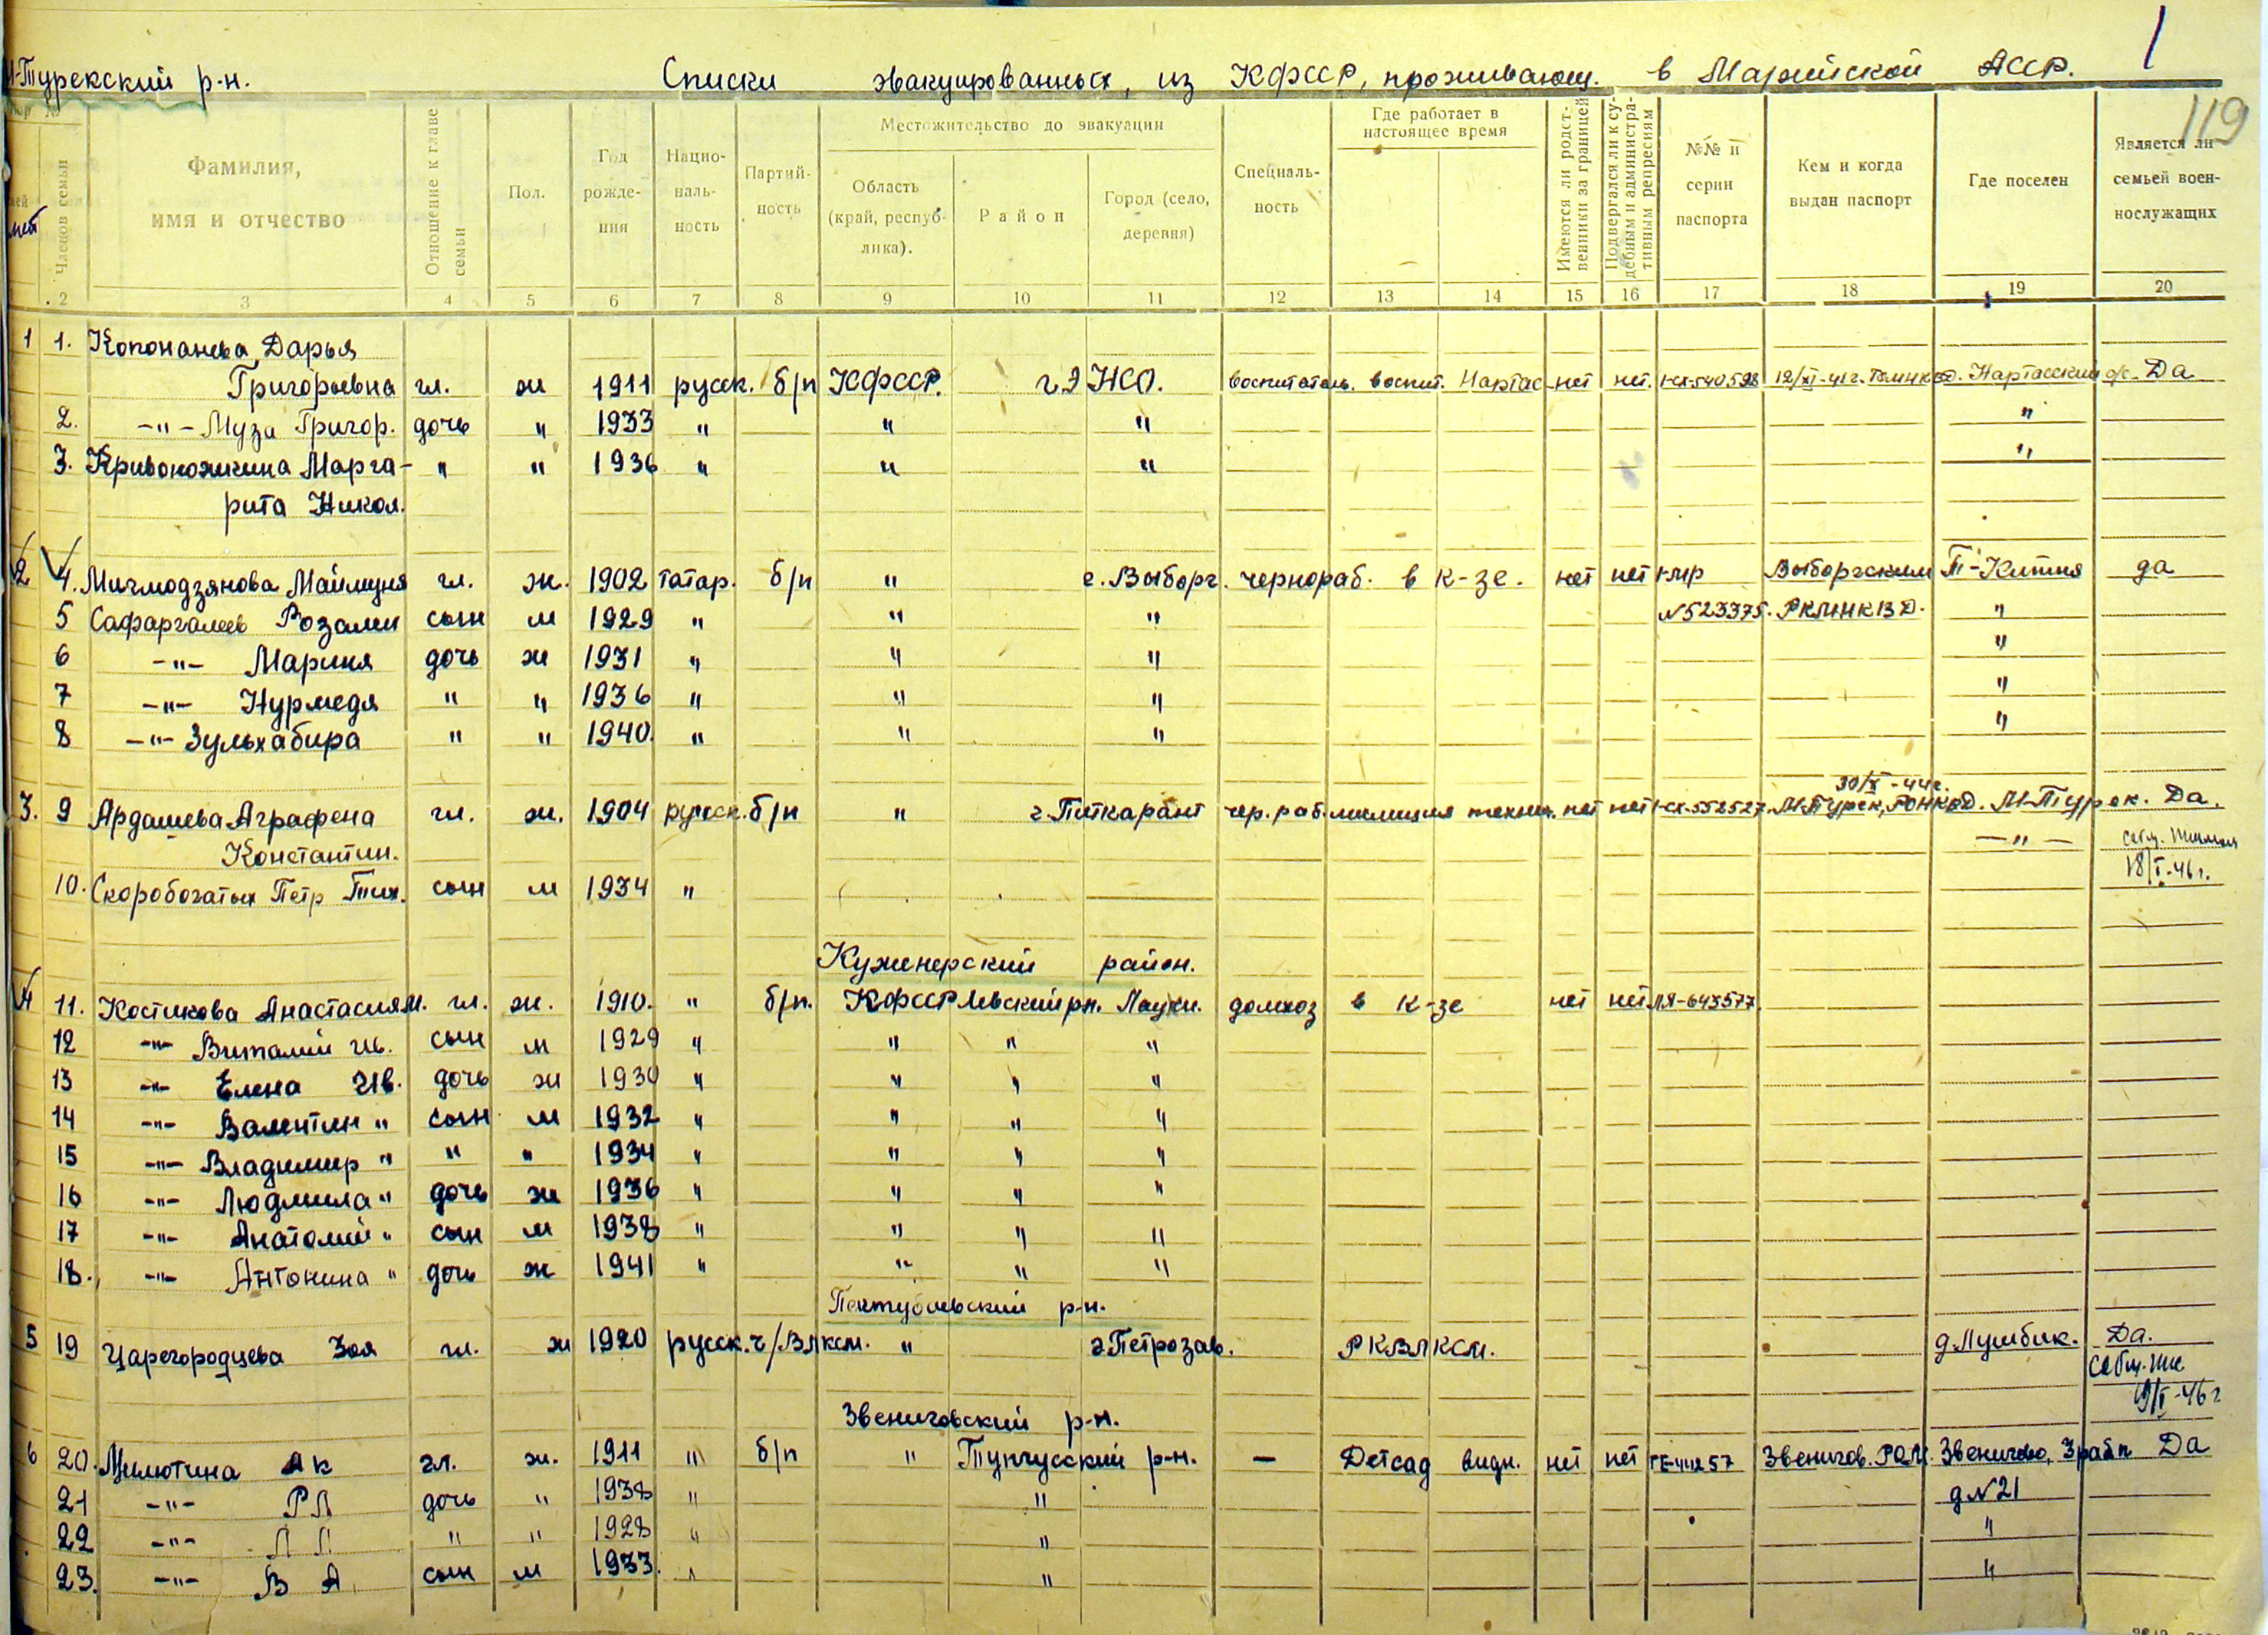 -Турекский р-н. Списки эвакуированных, из КФССР, проживающ. в Марийской АССР. 1
119
Членов семьи
Фамилия, имя и отчество
Отношение к главе семьи
Пол.
Год рожде- ния
Нацио- наль- ность
Партий- ность
Местожительство до эвакуации
Область (край, респуб- лика).
Район
Город (село, деревня)
Специаль- ность
Где работает в настоящее время
Имеются ли родст- венники за границей
Подвергался ли к су- дебным и администра- тивным репресиям
№№ и серии паспорта
Кем и когда выдан паспорт
Где поселен
Является ли семьей воен- нослужащих
2 3 4 5 6 7 8 9 10 11 12 13 14 15 16 17 18 19 20
1 1. Копонанева Дарья
Григорьевна гл. ж 1911 русск. б/п КФССР. воспитатель. воспит. Нартас нет нет. 540598 12/XI-41г. Нартасский с/с. Да
2. -"- Муза Григор. дочь " 1933 " " " "
3. Кривоножкина Марга- " " 1936 " " " "
рита Никол.
2 4. Мичмодзянова Маймуня гл. ж. 1902 татар. б/п " г. Выборг. чернораб. в к-зе. нет нет Выборгским П-Китня да
5 Сафаргалеев Розалин сын м 1929 " " " N523375. РКМНКВД. "
6 -"- Мариня дочь ж 1931 " " " "
7 -"- Нурмедя " " 1936 " " " "
8 -"- Зульхабира " " 1940. " " " "
30/X-44г.
3. 9 Ардашева Аграфена гл. ж. 1904 русск. б/п " г. Питкарант чер. раб. милиция техни. нет нет 552527. М-Турек, РОНКВД. М-Турек. Да.
Константин. -"-
10. Скоробогатых Петр Тих. сын м 1934 " 18/I-46г.
Куженерский район.
4 11. Костикова Анастасия М. гл. ж. 1910. " б/п. КФССР домхоз в к-зе нет нет ЛЯ-643577.
12 -"- Виталий Ив. сын м 1929 " " " "
13 -"- Елена Ив. дочь ж 1930 " " " "
14 -"- Валентин " сын м 1932 " " " "
15 -"- Владимир " " " 1934 " " " "
16 -"- Людмила " дочь ж 1936 " " " "
17 -"- Анатолий " сын м 1938 " " " "
18. -"- Антонина " дочь ж 1941 " " " "
р-н.
5 19 Царегородцева Зоя гл. ж 1920 русск. ч/ВЛКСМ. " г. Петрозав. РКВЛКСМ. Да.
19/I-46г
Звениговский р-н.
6 20. Милютина АК гл. ж. 1911 " б/п " Тунгусский р-н. — Детсад нет нет Звенигов. РОМ. Звенигово, Да
21 -"- РЛ дочь " 1938 " " д N21
22 -"- Л Л " " 1928 " " "
23. -"- В А. сын м 1933. " " "